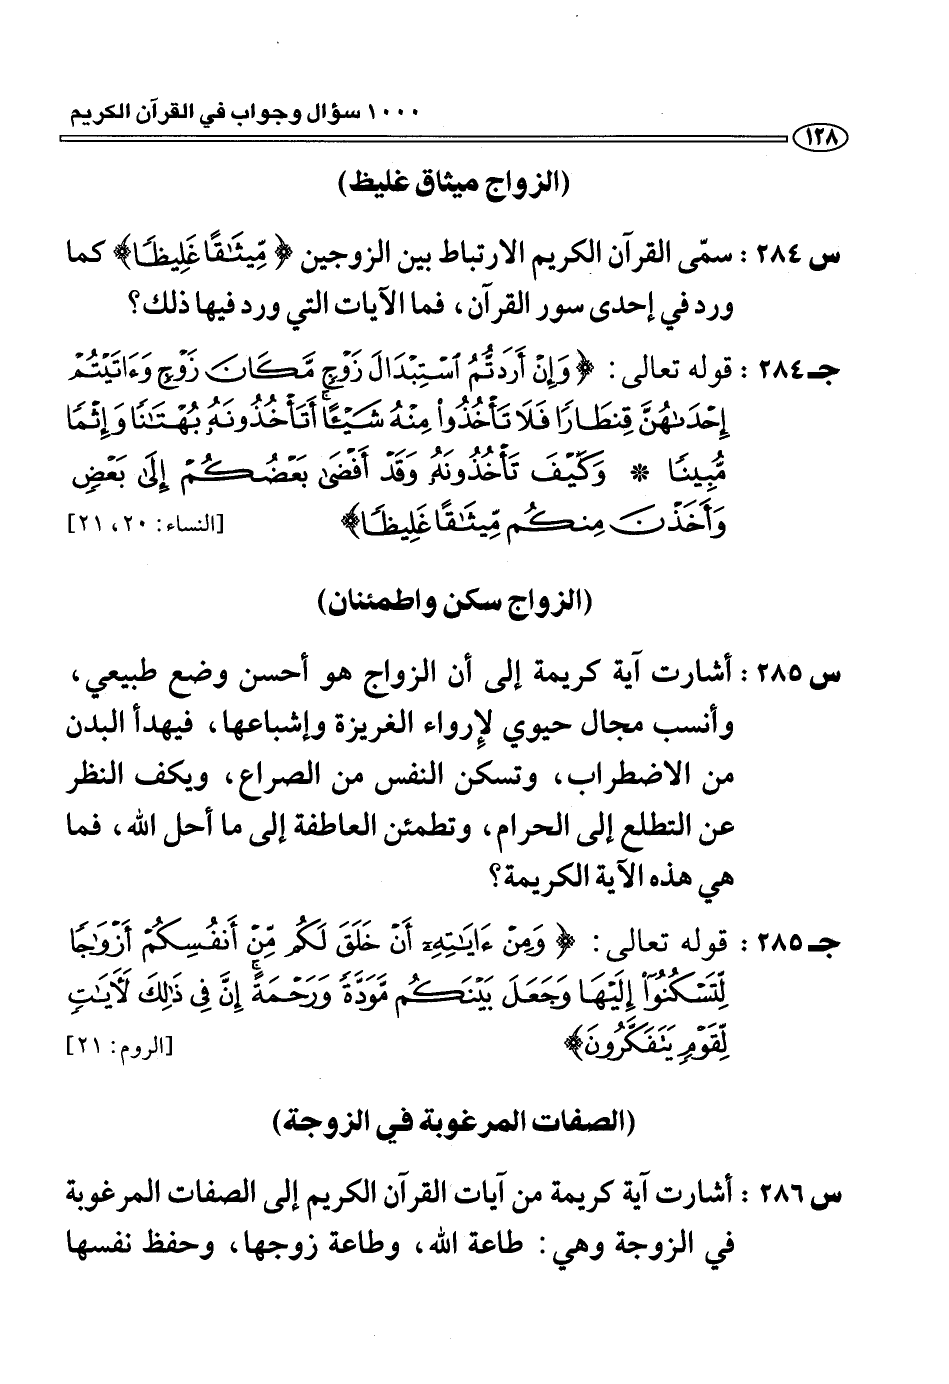 ١٠٠٠ سؤال وجواب في القرآن الكريم
١٢٨
(الزواج ميثاق غليظ)
س ٢٨٤ : سمّى القرآن الكريم الارتباط بين الزوجين ﴿ مِّيثَٰقًا غَلِيظًا﴾ كما
ورد في إحدى سور القرآن، فما الآيات التي ورد فيها ذلك؟
جـ ٢٨٤ : قوله تعالى: ﴿ وَإِنْ أَرَدتُّمُ ٱسْتِبْدَالَ زَوْجٍ مَّكَانَ زَوْجٍ وَءَاتَيْتُمْ
إِحْدَىٰهُنَّ قِنطَارًا فَلَا تَأْخُذُوا۟ مِنْهُ شَيْـًٔا ۚ أَتَأْخُذُونَهُۥ بُهْتَٰنًا وَإِثْمًا
مُّبِينًا * وَكَيْفَ تَأْخُذُونَهُۥ وَقَدْ أَفْضَىٰ بَعْضُكُمْ إِلَىٰ بَعْضٍ
وَأَخَذْنَ مِنكُم مِّيثَٰقًا غَلِيظًا﴾ [النساء: ٢٠، ٢١]
(الزواج سكن واطمئنان)
س ٢٨٥ : أشارت آية كريمة إلى أن الزواج هو أحسن وضع طبيعي،
وأنسب مجال حيوي لإرواء الغريزة وإشباعها، فيهدأ البدن
من الاضطراب، وتسكن النفس من الصراع، ويكف النظر
عن التطلع إلى الحرام، وتطمئن العاطفة إلى ما أحل الله، فما
هي هذه الآية الكريمة؟
جـ ٢٨٥ : قوله تعالى: ﴿ وَمِنْ ءَايَٰتِهِۦٓ أَنْ خَلَقَ لَكُم مِّنْ أَنفُسِكُمْ أَزْوَٰجًا
لِّتَسْكُنُوٓا۟ إِلَيْهَا وَجَعَلَ بَيْنَكُم مَّوَدَّةً وَرَحْمَةً ۚ إِنَّ فِى ذَٰلِكَ لَءَايَٰتٍ
لِّقَوْمٍ يَتَفَكَّرُونَ﴾ [الروم: ٢١]
(الصفات المرغوبة في الزوجة)
س ٢٨٦ : أشارت آية كريمة من آيات القرآن الكريم إلى الصفات المرغوبة
في الزوجة وهي: طاعة الله، وطاعة زوجها، وحفظ نفسها